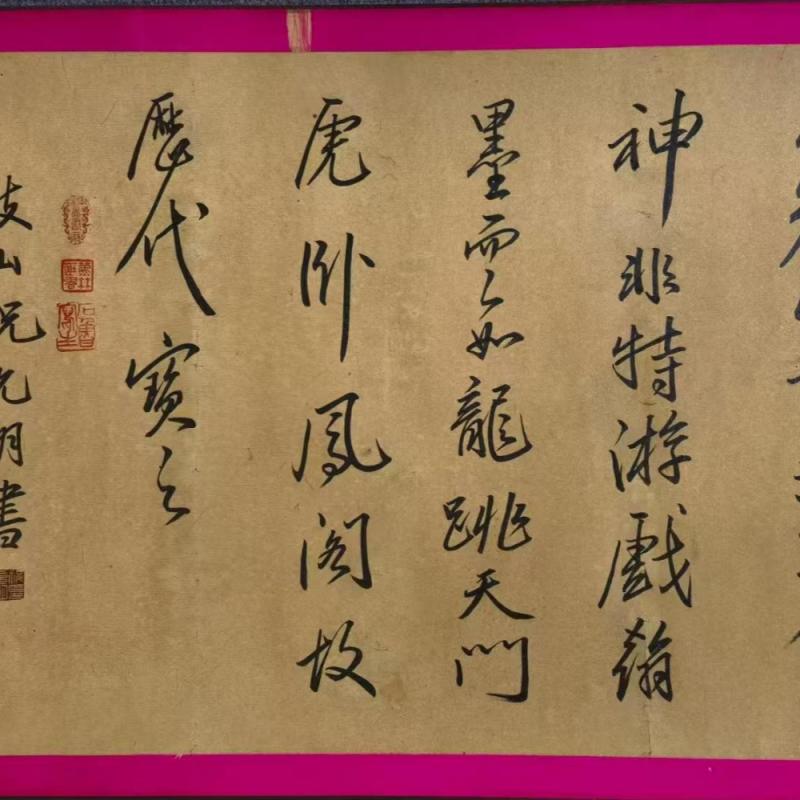 神非特游戲翰
墨而已如龍跳天門
虎卧鳳阁故
歷代寶之
枝山祝允明書